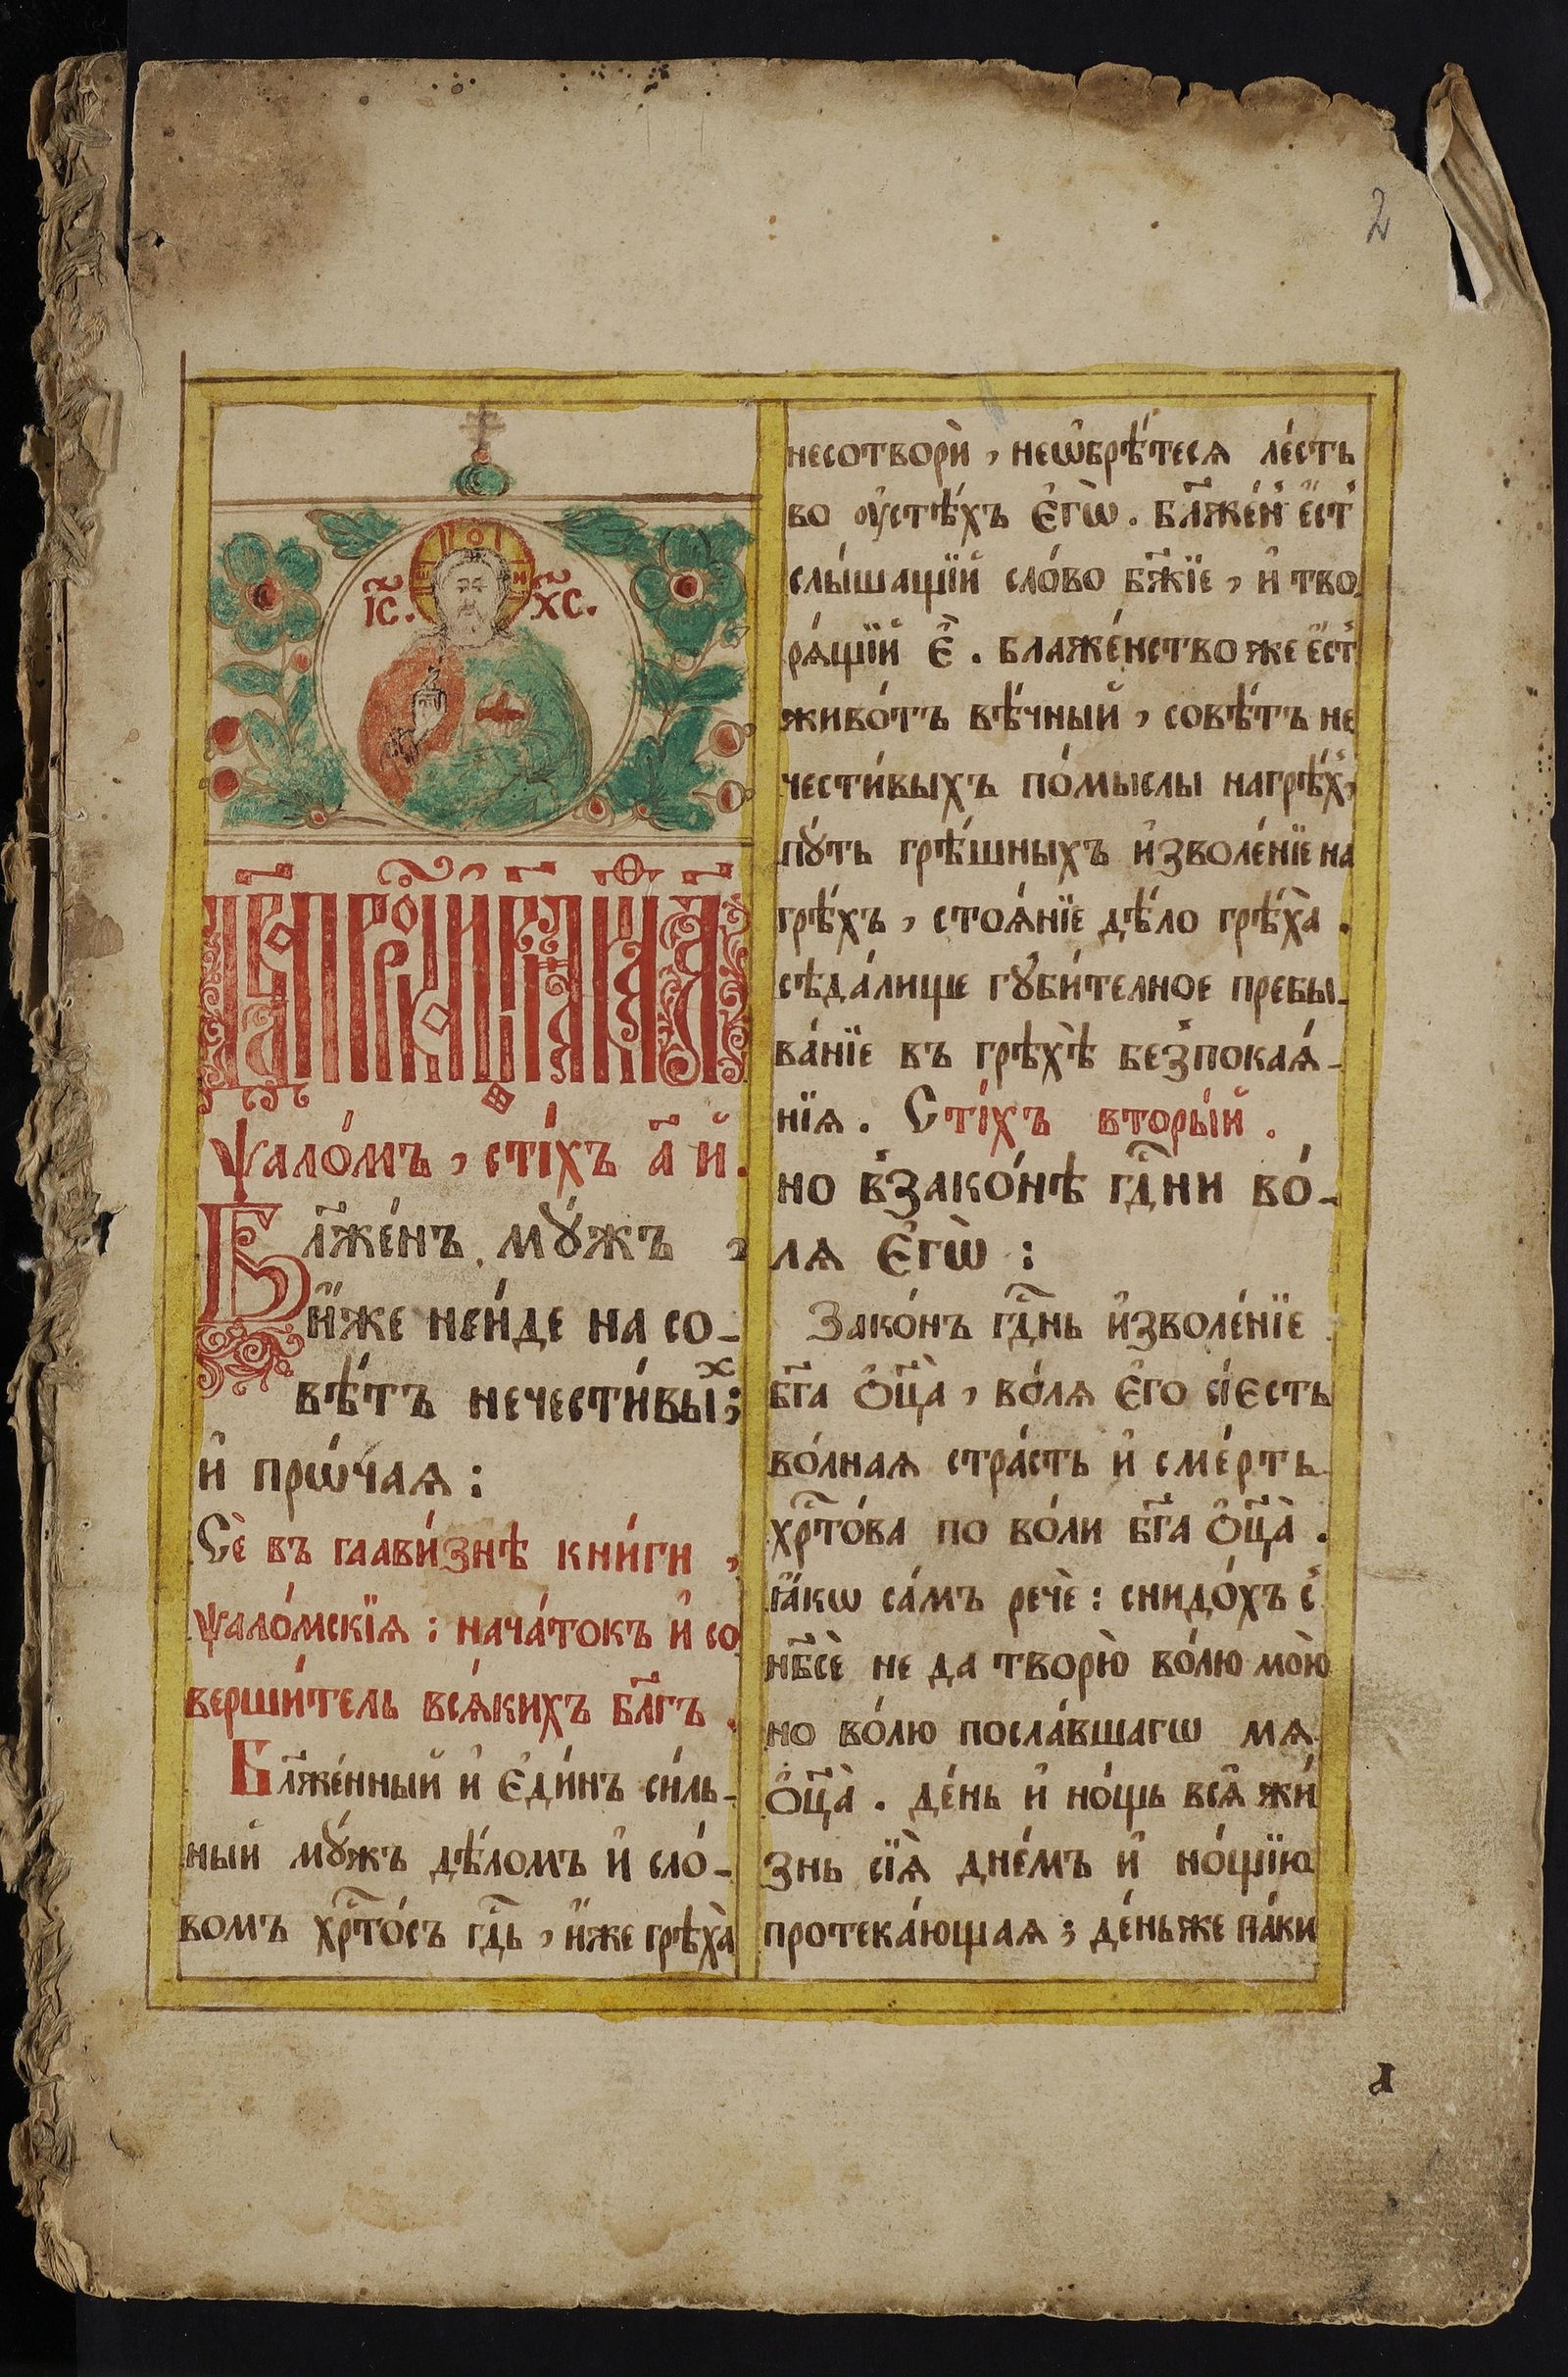 2
І҃С. Х҃С.
ѱало́мъ, стїхъ а҃ й.
Бл҃же́нъ мꙋ́жъ,
и́же неи́де на со-
вѣ́тъ нечести́выⷯ;
и҆ прѡ́чая:
Сѐ въ глави́знѣ кни́ги,
ѱало́мскїѧ: нача́токъ и҆ со
верши́тель всѧ́кихъ бл҃гъ.
Бл҃же́нный и҆ є҆ди́нъ си́ль-
ный мꙋ́жъ дѣ́ломъ и҆ сло́-
вомъ хрⷭ҇то́съ гдⷭ҇ь, и́же грѣха̀
несотворѝ, неѡ҆брѣ́тесѧ ле́сть
во ᲂу҆стѣ́хъ є҆гѡ̀. бл҃же́н є҆́ст
слы́шащїй сло́во бж҃їе, и҆ тво
рѧ́щїй є҆̀. блаже́нство же є҆́ст
живо́тъ вѣ́чный, совѣ́тъ не
чести́выхъ по́мыслы нагрѣ́х,
пꙋ́ть грѣ́шныхъ и҆зволе́нїе на
грѣ́хъ, стоѧ́нїе дѣ́ло грѣха̀.
сѣда́лище гꙋби́телное пребы-
ва́нїе въ грѣхѣ̀ безпокаѧ́-
нїѧ. Стїхъ вторы́й.
но взако́нѣ гдⷭ҇ни во́-
лѧ є҆гѡ̀:
Зако́нъ гдⷭ҇нь и҆зволе́нїе
бг҃а ѻ҆ц҃а̀, во́лѧ є҆го сїесть
во́лная стра́сть и҆ сме́рть
хрⷭ҇то́ва по во́ли бг҃а ѻ҆ц҃а̀.
ꙗ҆́кѡ са́мъ речѐ: снидо́хъ с
нб҃сѐ не да творю̀ во́лю мою̀
но во́лю посла́вшагѡ мѧ
ѻ҆ц҃а̀. де́нь и҆ но́щь всѧ̀ жи́
знь сїѧ̀ дне́мъ и҆ но́щїю
протека́ющая; де́ньже па́ки